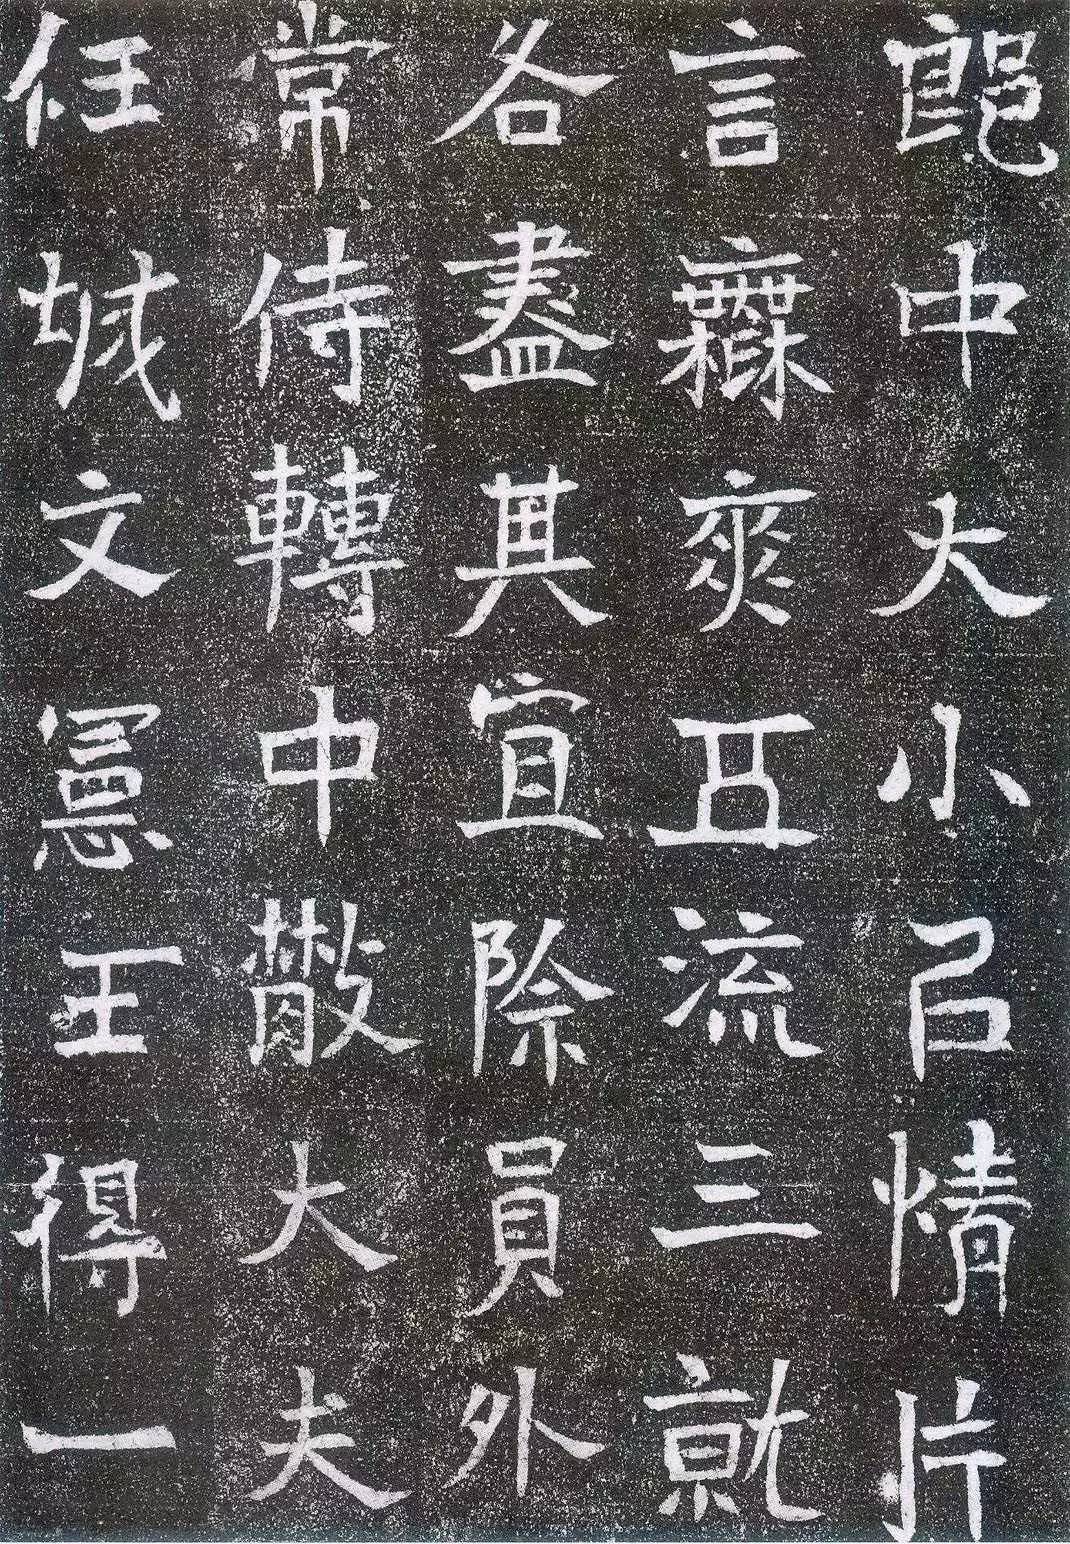 郎中大小㠯情片
言橆爽五流三就
各盡其宜除員外
常侍轉中散大夫
任城文憲王得一